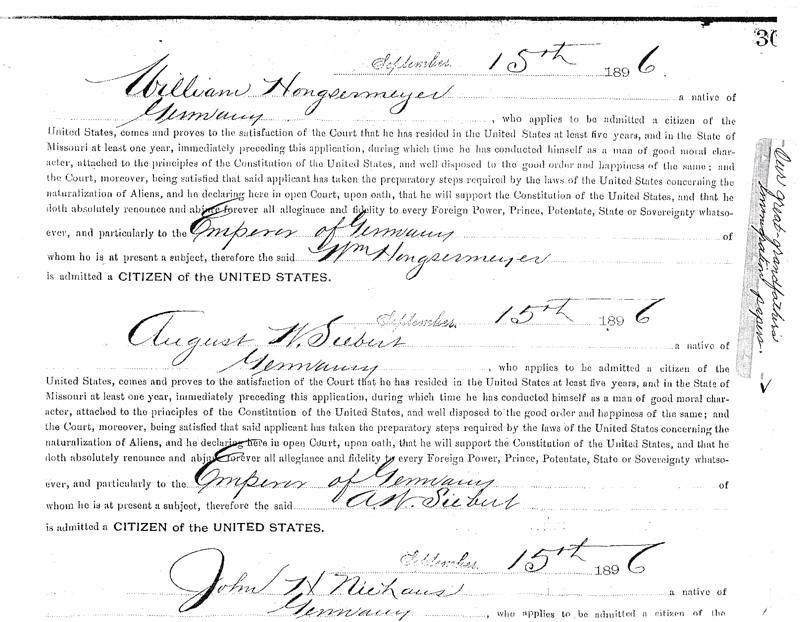 30
September 15th 1896.
William Hongsermeyer a native of
Germany, who applies to be admitted a citizen of the
United States, comes and proves to the satisfaction of the Court that he has resided in the United States at least five years, and in the State of
Missouri at least one year, immediately preceding this application, during which time he has conducted himself as a man of good moral char-
acter, attached to the principles of the Constitution of the United States, and well disposed to the good order and happiness of the same; and
the Court, moreover, being satisfied that said applicant has taken the preparatory steps required by the laws of the United States concerning the
naturalization of Aliens, and he declaring here in open Court, upon oath, that he will support the Constitution of the United States, and that he
doth absolutely renounce and abjure forever all allegiance and fidelity to every Foreign Power, Prince, Potentate, State or Sovereignty whatso-
ever, and particularly to the Emperor of Germany of
whom he is at present a subject, therefore the said Wm Hongsermeyer
is admitted a CITIZEN of the UNITED STATES.
September 15th 1896
August W. Siebert a native of
Germany, who applies to be admitted a citizen of the
United States, comes and proves to the satisfaction of the Court that he has resided in the United States at least five years, and in the State of
Missouri at least one year, immediately preceding this application, during which time he has conducted himself as a man of good moral char-
acter, attached to the principles of the Constitution of the United States, and well disposed to the good order and happiness of the same; and
the Court, moreover, being satisfied that said applicant has taken the preparatory steps required by the laws of the United States concerning the
naturalization of Aliens, and he declaring here in open Court, upon oath, that he will support the Constitution of the United States, and that he
doth absolutely renounce and abjure forever all allegiance and fidelity to every Foreign Power, Prince, Potentate, State or Sovereignty whatso-
ever, and particularly to the Emperor of Germany of
whom he is at present a subject, therefore the said A.W. Siebert
is admitted a CITIZEN of the UNITED STATES.
September 15th 1896
John H Niehaus a native of
Germany, who applies to be admitted a citizen of the
Our great-grandfather's
immigration papers. ->